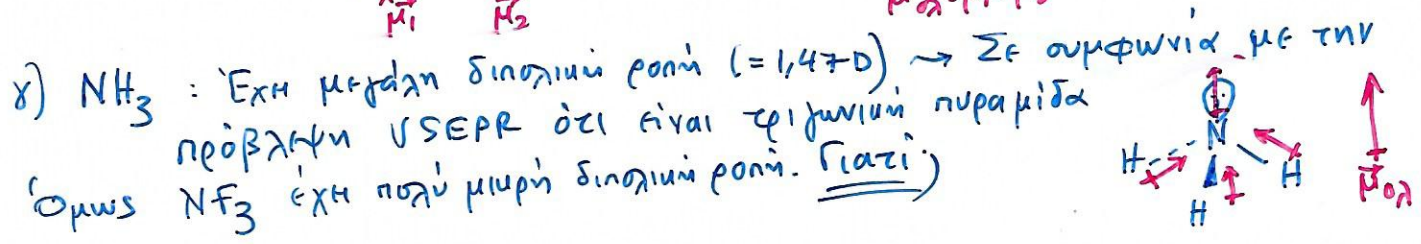 μ⃗1 μ⃗2
γ) NH3 : Έχει μεγάλη διπολική ροπή (=1,47D) → Σε συμφωνία με την
πρόβλεψη VSEPR ότι είναι τριγωνική πυραμίδα
Όμως NF3 έχει πολύ μικρή διπολική ροπή. Γιατί;
N
H H
H
μ⃗ολ